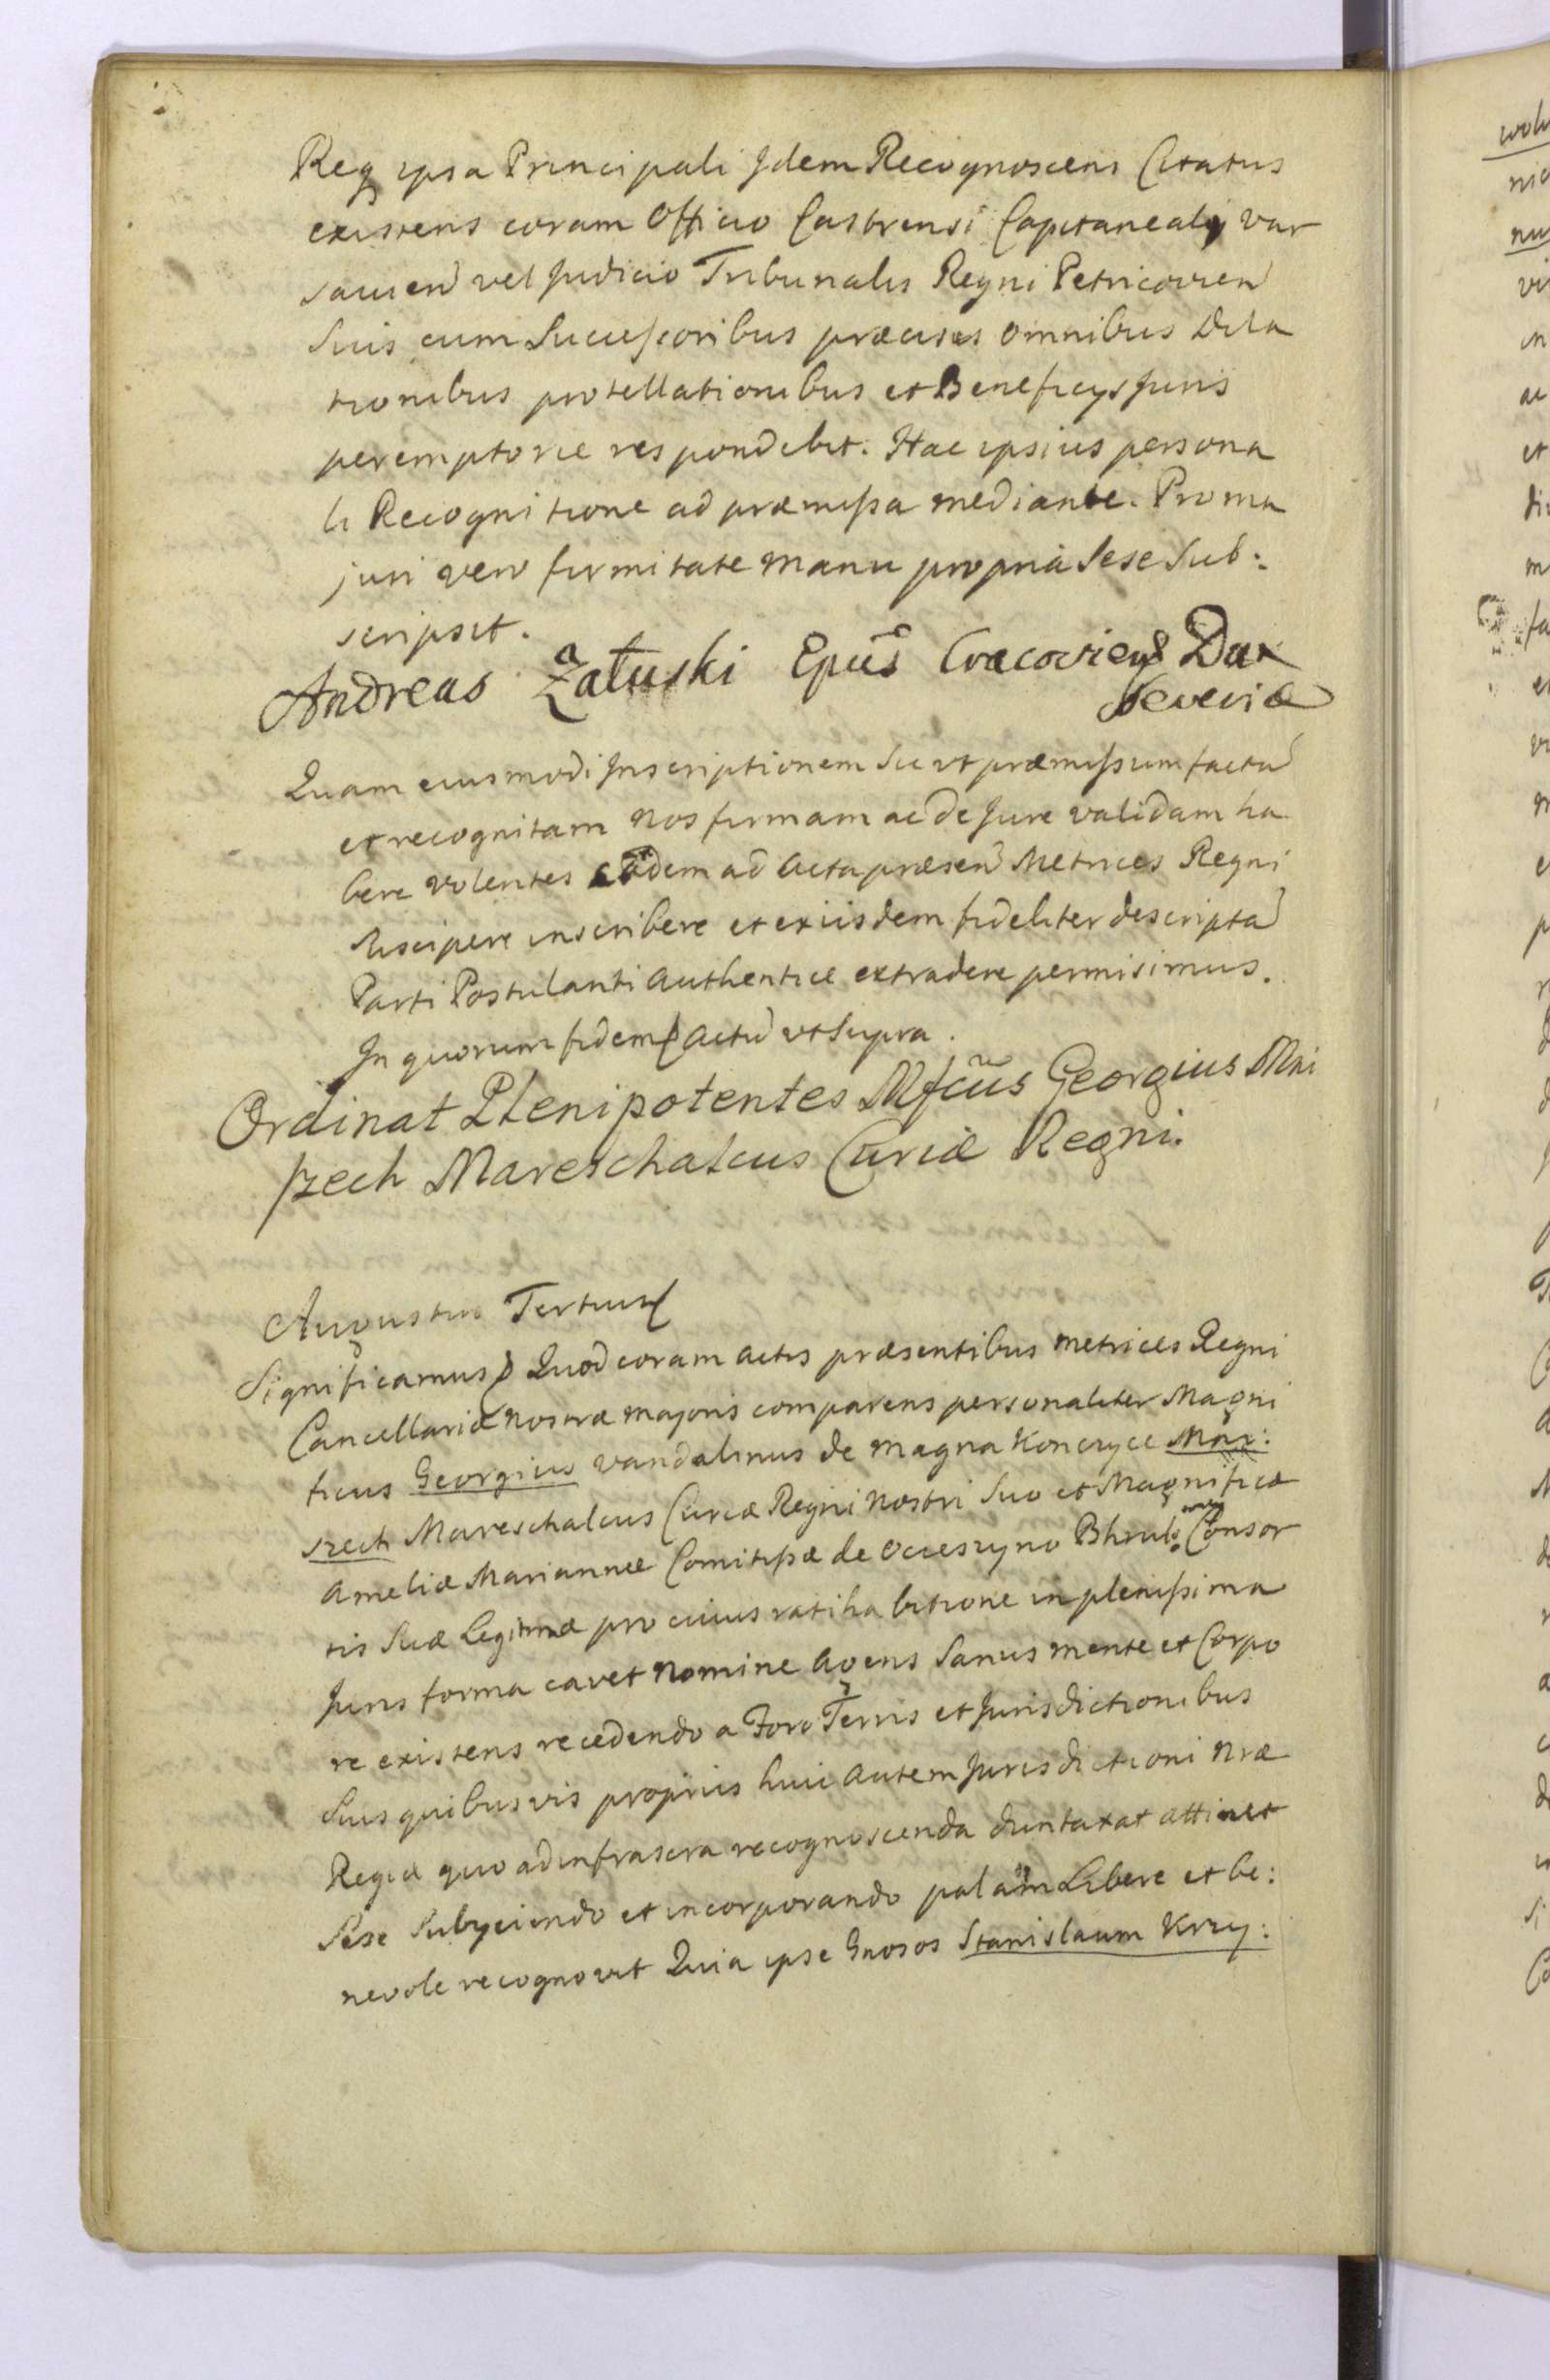 Req ipsa Principali Jdem Recognoscens Citatus
existens coram Officio Castrensi Capitaneali Var
savien vel Judicio Tribunalis Regni Petricovien
Suis cum Successoribus præcisis omnibus Dila
tionibus protellationibus et Beneficys Juris
peremptorie respondebit. Hac ipsius persona
li Recognitione ad præmissa mediante. Pro ma
juri vero firmitate manu propria Sese Sub:
scripsit.
Andreas a Załuski Epūs Cracovieñs Dux
Severiæ
Quam eiusmodi Jnscriptionem Sic ut præmissum factā
et recognitam nos firmam ac de Jure validam ha
bere volentes eādem ad Acta præsen Metrices Regni
Suscipere inscribere et exiisdem fideliter descriptā
Parti Postulanti Authentice extradere permisimus.
Jn quorum fidem Actū ut Supra.
Ordinat Plenipotentes Mfcūs Georgius Mni
szech Mareschalcus Curiæ Regni.
Augustus Tertius
Significamus Quod coram Actis præsentibus Metrices Regni
Cancellariæ nostræ majoris comparens personaliter Magni
ficus Georgius Vandalinus de magna Konczyce Mni:
szech Mareschalcus Curiæ Regni Nostri Suo et Magnificæ
Ameliæ Mariannæ Comitissæ de Ocieszyno Bhrul Consor
tis Suæ Legitimæ pro cuius ratihabitione in plenissima
Juris forma cavet Nomine Agens Sanus mente et Corpo
re existens recedendo a Foro Terris et Jurisdictionibus
Suis quibusvis proprijs huic Autem Jurisdictioni Nræ
Regiæ quo ad infrascra recognoscenda duntaxat attinet
Sese Subyciendo et incorporando palam Libere et be:
nevole recognovit Quia ipse Gnosos Stanislaum Krzy: